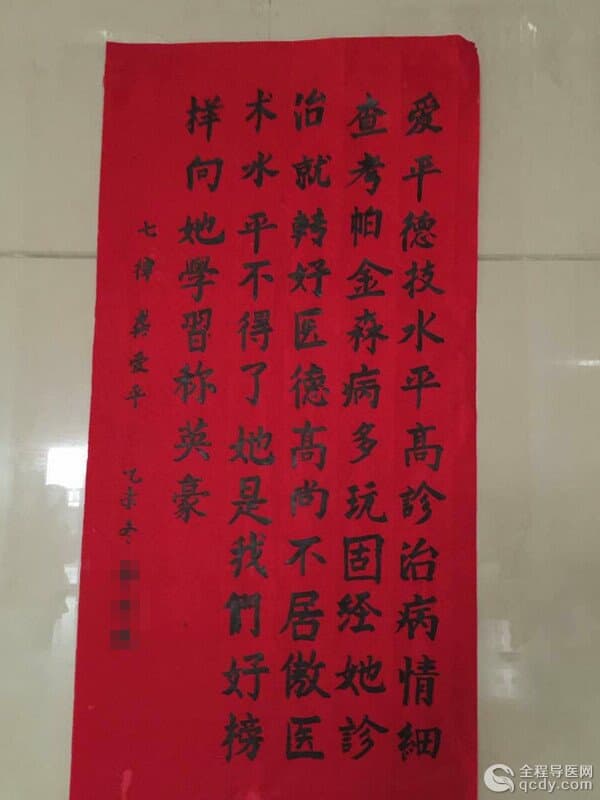 爱平德技水平高診治病情細
查考帕金森病多玩固经她診
治就转好医德高尚不居傲医
术水平不得了她是我們好榜
样向她學習称英豪
七律 龚爱平 乙未冬
全程导医网
qcdy.com